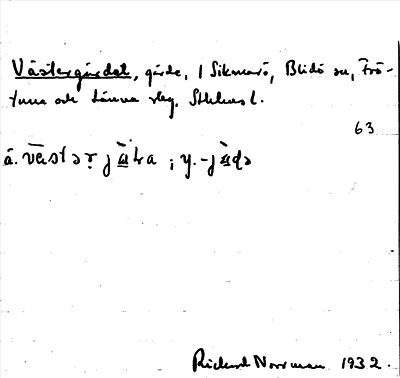 Västergärdet, gärde, i Sikmarö, Blidö sn, Frö-
tuna och Länna slg, Sthlms l.
63
ä. västərjä
; y. -j
Rickard Norrman 1932.